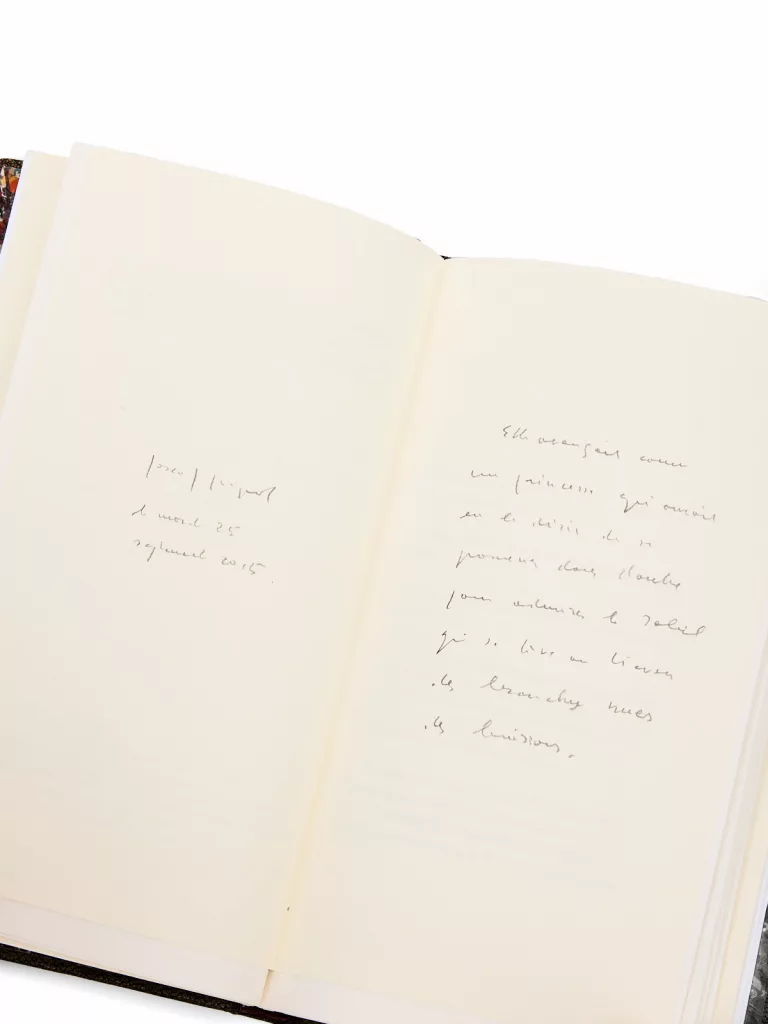 Pascal Quignard
le mardi 25
2015.
Elle avançait comme
une princesse qui aurait
eu le désir de se
promener dans l'aube
pour admirer le soleil
qui se lève au travers
des branches nues
des buissons.